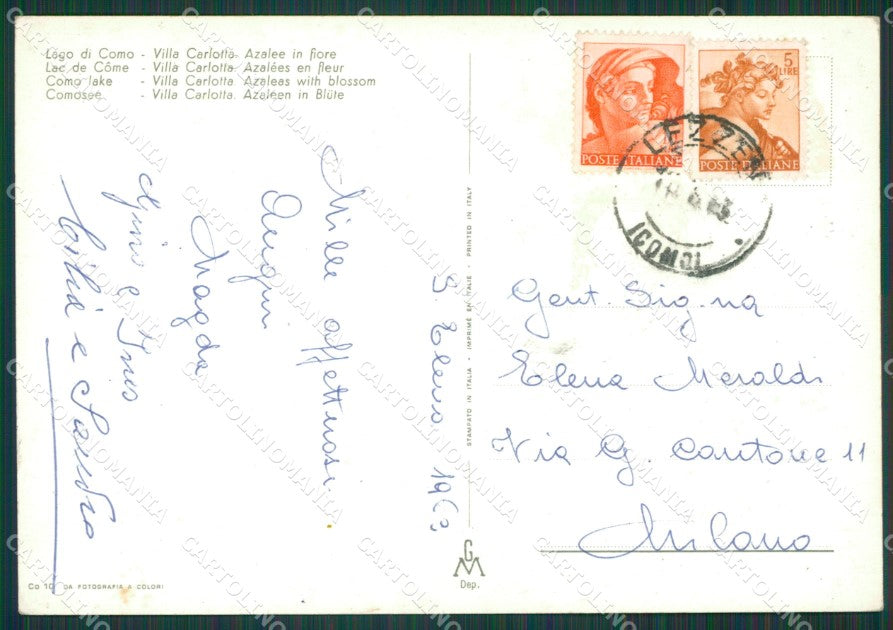 Lago di Como - Villa Carlotta. Azalee in fiore
Lac de Côme - Villa Carlotta. Azalées en fleur
Como lake - Villa Carlotta. Azaleas with blossom
Comosee - Villa Carlotta. Azaleen in Blüte
S. Elena 1963
Mille affettuosi
Auguri
Magda
Gino e Ines
e Sandra
STAMPATO IN ITALIA - IMPRIMÉ EN ITALIE - PRINTED IN ITALY
POSTE ITALIANE
5
LIRE
POSTE ITALIANE
LEZZENO
(COMO)
Gent. Sig.na
Elena Meraldi
Via G. Cantone 11
Milano
GM
Dep.
Co 10 DA FOTOGRAFIA A COLORI
CARTOLINOMANIA